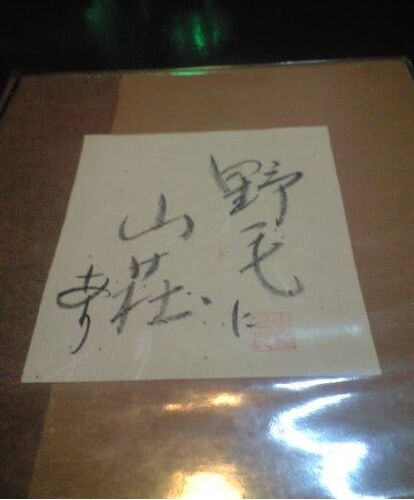 野毛に
山荘
あり